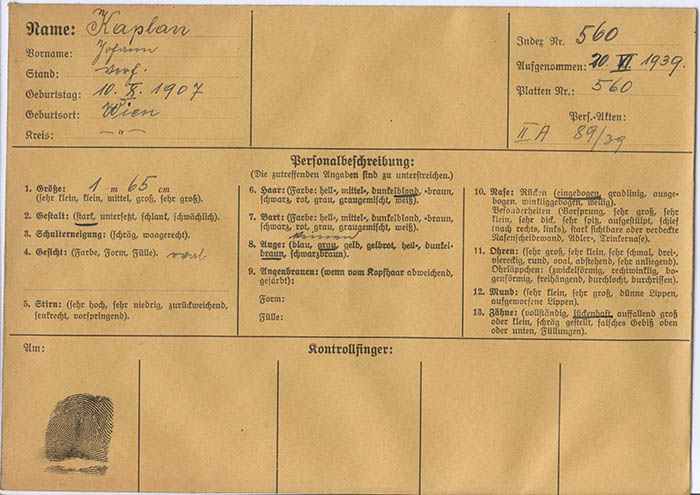 Name: Kaplan
Vorname: Johann
Stand: verh.
Geburtstag: 10. X. 1907
Geburtsort: Wien
Kreis: — „ —
Index Nr. 560
Aufgenommen: 20. VI. 1939.
Platten Nr.: 560
Pers.-Akten:
II A 89/39
Personalbeschreibung:
(Die zutreffenden Angaben sind zu unterstreichen.)
1. Größe: 1 m 65 cm
(sehr klein, klein, mittel, groß, sehr groß).
2. Gestalt: (stark, untersetzt, schlank, schwächlich).
3. Schulterneigung: (schräg, waagerecht).
4. Gesicht: (Farbe, Form, Fülle). oval
5. Stirn: (sehr hoch, sehr niedrig, zurückweichend,
senkrecht, vorspringend).
6. Haar: (Farbe: hell-, mittel-, dunkelblond, -braun,
schwarz, rot, grau, graugemischt, weiß).
7. Bart: (Farbe: hell-, mittel-, dunkelblond, -braun,
schwarz, rot, grau, graugemischt, weiß).
8. Auge: (blau, grau, gelb, gelbrot, hell-, dunkel-
braun, schwarzbraun).
9. Augenbrauen: (wenn vom Kopfhaar abweichend,
gefärbt):
Form:
Fülle:
10. Nase: Rücken (eingebogen, gradlinig, ausge-
bogen, winkliggebogen, wellig).
Besonderheiten (Vorsprung, sehr groß, sehr
klein, sehr dick, sehr spitz, aufgestülpt, schief
(nach rechts, links), stark sichtbare oder verdeckte
Nasenscheidewand, Adler-, Trinkernase).
11. Ohren: (sehr groß, sehr klein, sehr schmal, drei-,
viereckig, rund, oval, abstehend, sehr anliegend).
Ohrläppchen: (zwickelförmig, rechtwinklig, bo-
genförmig, freihängend, durchlocht, durchrissen).
12. Mund: (sehr klein, sehr groß, dünne Lippen,
aufgeworfene Lippen).
13. Zähne: (vollständig, lückenhaft, auffallend groß
oder klein, schräg gestellt, falsches Gebiß oben
oder unten, Füllungen).
Am:
Kontrollfinger: